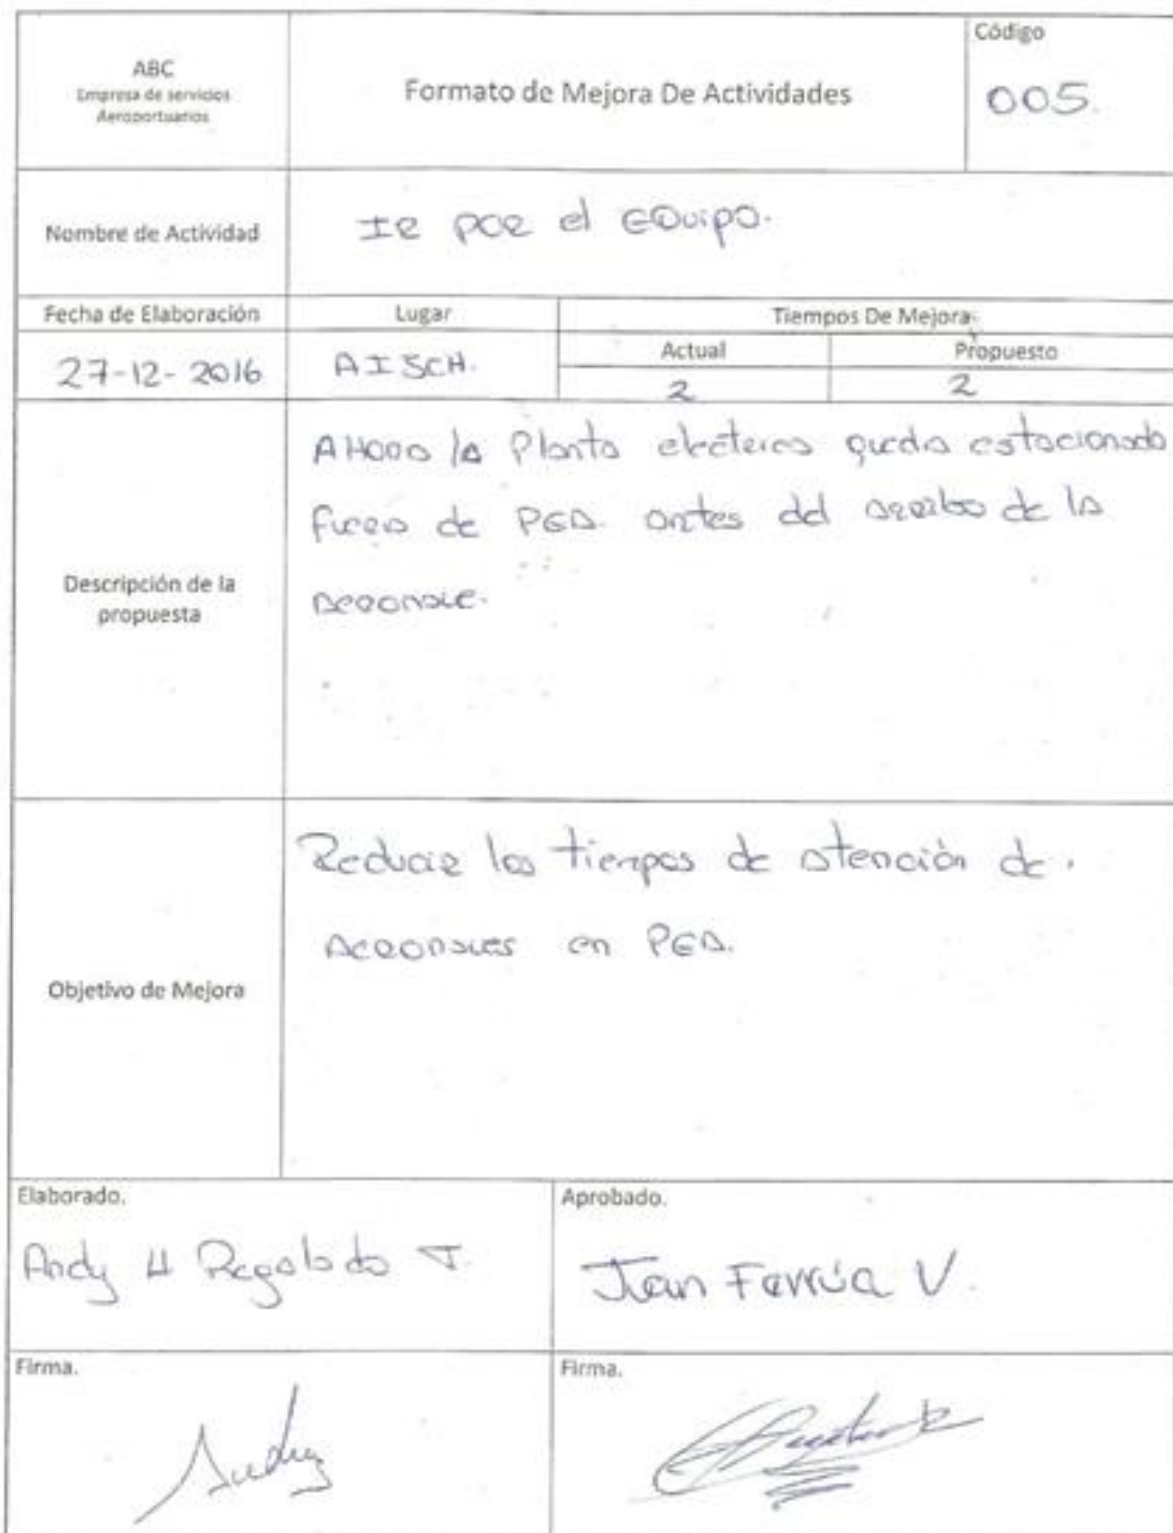 ABC
Empresa de servicios
Aeroportuarios
Formato de Mejora De Actividades
Código
005.
Nombre de Actividad
Ir por el equipo.
Fecha de Elaboración
Lugar
Tiempos De Mejora
Actual
Propuesto
27-12-2016
AISCH.
2
2
Descripción de la
propuesta
AHora la Planta electrica queda estacionada
fuera de PEA. antes del arribo de la
aeronave.
Objetivo de Mejora
Reducir los tiempos de atención de
aeronaves en PEA.
Elaborado.
Andy H Regalado T.
Aprobado.
Jean Farrúa V.
Firma.
Andy
Firma.